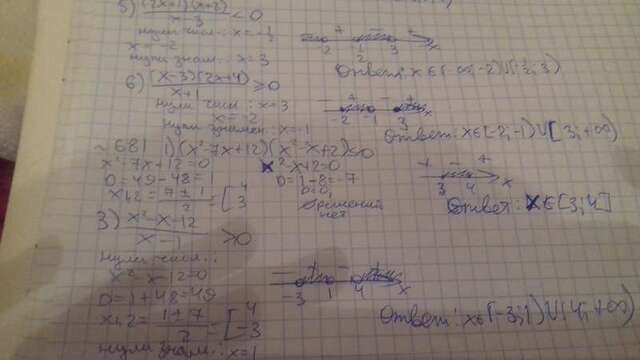 5) (2x+1)(x+2) / x-3 < 0
нули числ.: x = -½
x = -2
нули знам.: x = 3
+ -
-2 -½ 3 x
Ответ: x∈(-∞; -2)∪(-½; 3)
6) (x-3)(2x+4) / x+1 ≥ 0
нули числ.: x = 3
x = -2
нули знамен.: x = -1
-2 -1 3 x
Ответ: x∈[-2; -1)∪[3; +∞)
~681 1) (x²-7x+12)(x²-x+2) ≤ 0
x²-7x+12=0 x²-x+2=0
D=49-48=1 D=1-8=-7
x1,2 = 7±1 / 2 = [4 3
решений
нет
+ - +
3 4 x
Ответ: x∈[3; 4]
3) x²-x-12 / x-1 > 0
нули числ.:
x²-x-12=0
D=1+48=49
x1,2 = 1±7 / 2 = [4 -3
нули знам.: x=1
- + - +
-3 1 4 x
Ответ: x∈(-3; 1)∪(4; +∞)